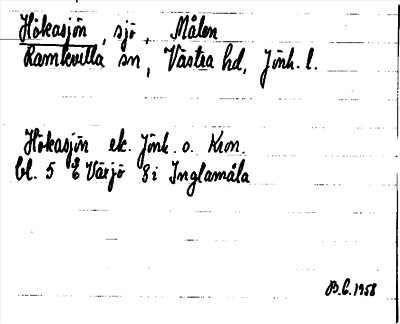 Hökasjön, sjö, Målen
Ramkvilla sn, Västra hd, Jönk. l.
Hökasjön ek. Jönk. o. Kron.
bl. 5 Växjö i Inglamåla
B.G. 1958